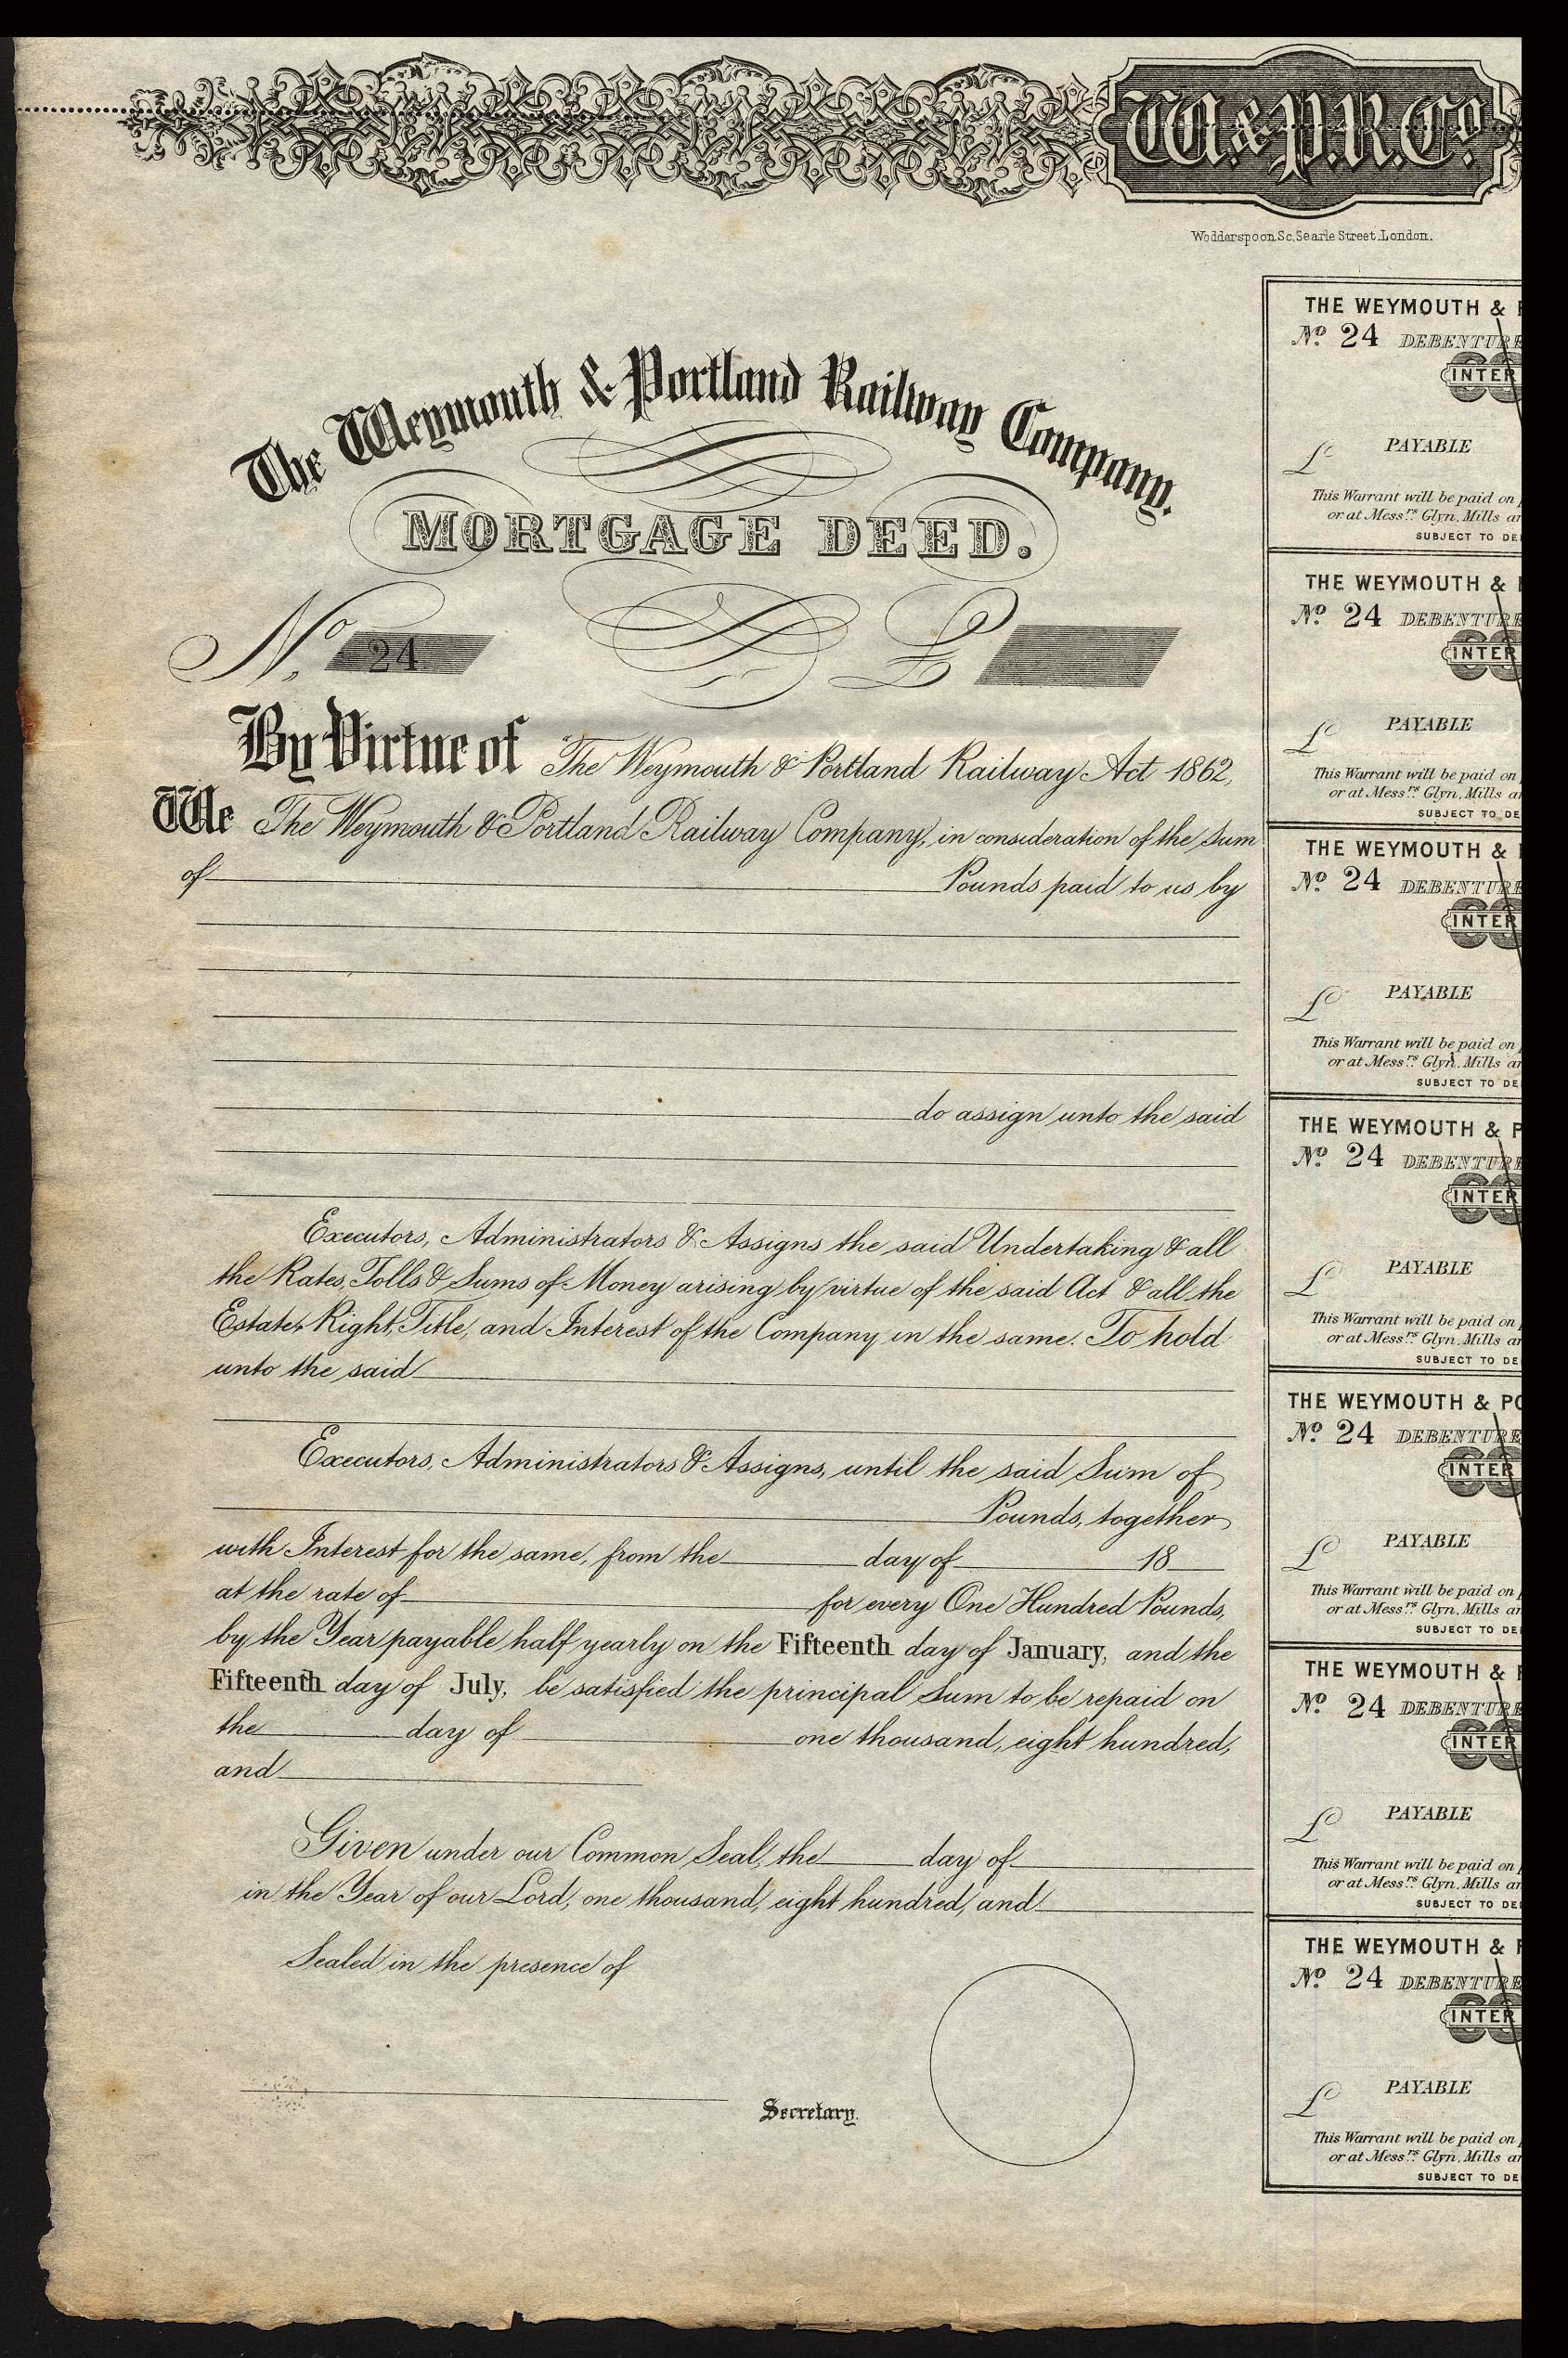 W. & P. R. Co.
Wodderspoon Sc. Searle Street, London.
The Weymouth & Portland Railway Company.
MORTGAGE DEED.
No. 24 £
By Virtue of The Weymouth & Portland Railway Act 1862,
We The Weymouth & Portland Railway Company, in consideration of the Sum
of Pounds paid to us by
do assign unto the said
Executors, Administrators & Assigns the said Undertaking & all
the Rates, Tolls & Sums of Money arising by virtue of the said Act & all the
Estate, Right, Title, and Interest of the Company in the same. To hold
unto the said
Executors, Administrators & Assigns, until the said Sum of
Pounds, together
with Interest for the same, from the day of 18
at the rate of for every One Hundred Pounds,
by the Year payable half yearly on the Fifteenth day of January, and the
Fifteenth day of July, be satisfied the principal Sum to be repaid on
the day of one thousand, eight hundred,
and
Given under our Common Seal, the day of
in the Year of our Lord, one thousand, eight hundred, and
Sealed in the presence of
Secretary.
THE WEYMOUTH &
No. 24 DEBENTURE
INTER
£ PAYABLE
This Warrant will be paid on
or at Messrs. Glyn, Mills
SUBJECT TO DE
THE WEYMOUTH &
No. 24 DEBENTURE
INTER
£ PAYABLE
This Warrant will be paid on
or at Messrs. Glyn, Mills
SUBJECT TO DE
THE WEYMOUTH &
No. 24 DEBENTURE
INTER
£ PAYABLE
This Warrant will be paid on
or at Messrs. Glyn, Mills
SUBJECT TO DE
THE WEYMOUTH & P
No. 24 DEBENTURE
INTER
£ PAYABLE
This Warrant will be paid on
or at Messrs. Glyn, Mills
SUBJECT TO DE
THE WEYMOUTH & PO
No. 24 DEBENTURE
INTER
£ PAYABLE
This Warrant will be paid on
or at Messrs. Glyn, Mills
SUBJECT TO DE
THE WEYMOUTH &
No. 24 DEBENTURE
INTER
£ PAYABLE
This Warrant will be paid on
or at Messrs. Glyn, Mills
SUBJECT TO DE
THE WEYMOUTH &
No. 24 DEBENTURE
INTER
£ PAYABLE
This Warrant will be paid on
or at Messrs. Glyn, Mills
SUBJECT TO DE